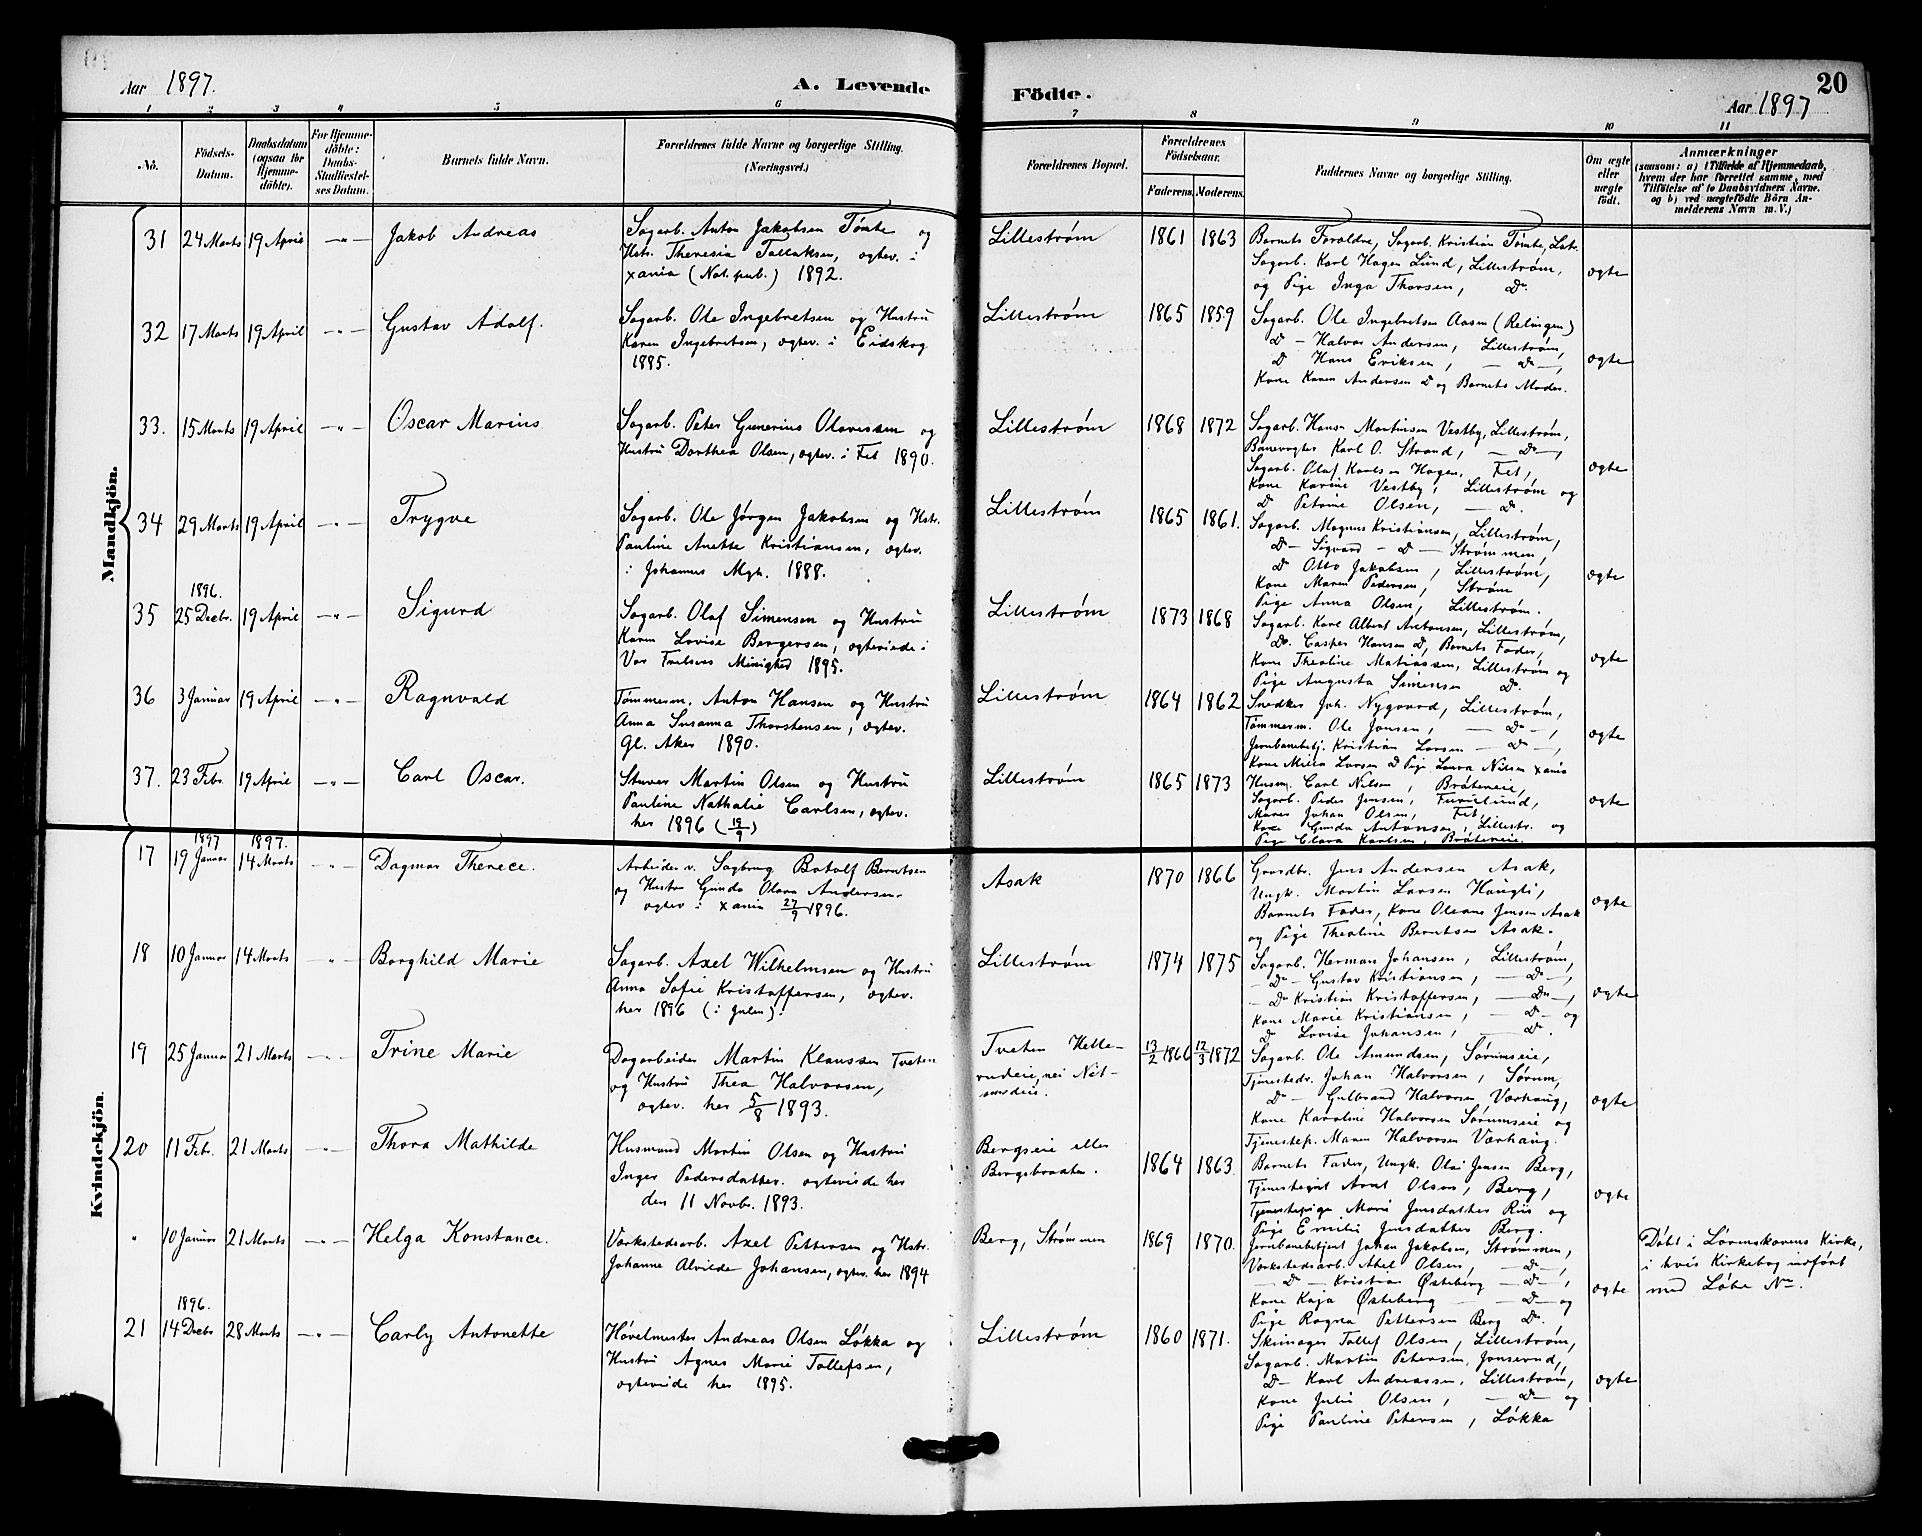 Aar 1897.
A. Levende
Födte.
20
Aar 1897
1 2 3 4 5 6 7 8 9 10 11
No.
Födsels-Datum.
Daabsdatum (ogsaa for Hjemme-döbte).
For Hjemme-döbte: Daabs-Stadfæstel-ses Datum.
Barnets fulde Navn.
Forældrenes fulde Navne og borgerlige Stilling. (Næringsvei.)
Forældrenes Bopæl.
Forældrenes Födselsaar.
Faderens. Moderens.
Faddernes Navne og borgerlige Stilling.
Om ægte eller uægte födt.
Anmærkninger
(saasom: a) i Tilfælde af Hjemmedaab,
hvem der har forrettet samme, med
Tilföielse af to Daabsvidners Navne.
og b) ved uægtefödte Börn An-
melderens Navn m. V.)
Mandkjön.
31 24 Marts 19 April - " - Jakob Andreas
Sagarb. Anton Jakobsen Tømte og
Hstr. Theresia Tollaksen, ægtev. i
Xania (Not. pub.) 1892.
Lillestrøm 1861 1863
Barnets Forældre, Sagarb. Kristian Tømte, Lstr.
Sagarb. Karl Hagen Lund, Lillestrøm,
og Pige Inga Thorsen, Do.
ægte
32 17 Marts 19 April - " - Gustav Adolf.
Sagarb. Ole Ingebretsen og Hustru
Karen Ingebretsen, ægtev. i Eidskog
1885.
Lillestrøm 1865 1859
Sagarb. Ole Ingebretsen Aasen (Relingen)
D - Halvor Andersen, Lillestrøm,
D Hans Eriksen, - D -,
Kone Karen Andersen D og Barnets Moder.
ægte
33. 15 Marts 19 April - " - Oscar Marius
Sagarb. Peter Gunerius Olavesen og
Hustru Dorthea Olsen, ægtev. i Fet 1890.
Lillestrøm 1868 1872
Sagarb. Hans Martinsen Vestby, Lillestrøm,
Banevogter Karl O. Strand, - D -,
Sagarb. Olaf Karlsen Hagen, Fet,
Kone Karine Vestby, Lillestrøm og
D Petrine Olsen, - D.
ægte
34 29 Marts 19 April - " - Trygve
Sagarb. Ole Jørgen Jakobsen og Hstr.
Pauline Anette Kristiansen, ægtev.
i Johannes Mgh. 1888.
Lillestrøm 1865 1861.
Sagarb. Magnus Kristiansen, Lillestrøm,
D - Sigvard - D - Strømmen,
D Otto Jakobsen, Lillestrøm,
Kone Maren Pedersen, Strøm
Pige Anna Olsen, Lillestrøm.
ægte
35 1896. 25 Decbr. 19 April - " - Sigurd
Sagarb. Olaf Simensen og Hustru
Karen Lovise Bergersen, ægteviede i
Vor Frelsers Minighed 1895.
Lillestrøm 1873 1868
Sagarb. Karl Albert Antonsen, Lillestrøm,
Do. Casper Hansen D, Barnets Fader,
Kone Theoline Matiassen, Lillestrøm og
Pige Augusta Simensen D.
ægte
36 3 Januar 19 April - " - Ragnvald
Tømmerm. Anton Hansen og Hustru
Anna Susanna Thorstensen, ægtev.
Gl. Aker 1890.
Lillestrøm 1864 1862
Snedker Joh. Nygaard, Lillestrøm,
Tømmerm. Ole Jonsen, - D -,
Jernbanebetj. Kristian Larsen - D -,
Kone Milla Larsen D Pige Laura Nilsen Xania
ægte
37. 23 Febr. 19 April - " - Carl Oscar.
Stuver Martin Olsen og Hustru
Pauline Nathalie Carlsen, ægtev.
her 1896 (19/9)
Lillestrøm 1865 1873
Husm. Carl Nilsen, Bråteneie,
Sagarb. Peder Jensen, Furulund,
Murer Johan Olsen, Fet,
Kone Gunda Antonsen, Lillestr. og
Pige Clara Karlsen, Bråteneie.
ægte
Kvindekjön.
17 1897 19 Januar 1897. 14 Marts - " - Dagmar Therece.
Arbeider v. Sagbrug Botolf Berntsen
og Hustru Gunda Olava Andersen.
ægtev. i Xania 27/9 1896.
Asak 1870 1866
Gaardbr. Jens Andersen Asak,
Ungk. Martin Larsen Haugli,
Barnets Fader, Kone Oleane Jensen Asak
og Pige Theoline Berntsen Asak.
ægte
18 10 Januar 14 Marts " Borghild Marie
Sagarb. Axel Wilhelmsen og Hustru
Anna Sofie Kristoffersen, ægtev.
her 1896 (i Julen).
Lillestrøm 1874 1875
Sagarb. Herman Johansen, Lillestrøm,
- Do - Gustav Kristiansen, - D -,
- Do Kristian Kristoffersen, - Do -,
Kone Marie Kristiansen, - D - og
Do Lovise Johansen, - D.
ægte
19 25 Januar 21 Marts - " - Trine Marie
Dagarbeider Martin Klaussen Tveten
og Hustru Thea Halvorsen,
ægtev. her 5/8 1893.
Tveten Helle-
rudeie, nei Nit-
sundeie.
13/2 1866 12/3 1872
Sagarb. Ole Amundsen, Sørumseie,
Tjenestedr. Johan Halvorsen, Sørum,
D - Gulbrand Halvorsen Værhaug,
Kone Karoline Halvorsen Sørumseie og
Tjenestep. Maren Halvorsen Værhaug.
ægte
20 11 Febr. 21 Marts - " - Thora Mathilde
Husmand Martin Olsen og Hustru
Inger Pedersdatter. ægteviede her
den 11 Novbr. 1893.
Bergseie eller
Bergsbraaten.
1864 1863.
Barnets Fader, Ungk. Olai Jensen Berg,
Tjenestegut Axel Olsen, Berg,
Tjenestepige Marie Jensdatter Riis og
Pige Emilie Jensdatter Berg.
ægte
" 10 Januar 21 Marts - " - Helga Konstance.
Værkstedsarb. Axel Pettersen og Hstr.
Johanne Alvilde Johansen, ægtev. her 1894
Berg, Strømmen 1869 1870.
Jernbanebetjent Johan Jakobsen, Strømmen,
Værkstedsarb. Abel Olsen, - D -,
- D - Kristian Østeberg - D -,
Kone Kaja Østeberg - D - og
Pige Ragna Pettersen Berg D.
ægte
Døbt i Lørenskovens Kirke,
i hvis Kirkebog indført
med Løbe No.
21 1896. 14 Decbr 28 Marts - " - Carly Antonette
Høvelmester Andreas Olsen Løkka og
Hustru Agnes Marie Tollefsen,
ægteviede her 1895.
Lillestrøm 1860 1871.
Skrinager Tollef Olsen, Lillestrøm,
Sagarb. Martin Petersen, Jonsrud,
D - Karl Andreassen, Lillestrøm,
Kone Julie Olsen, - D - og
Pige Pauline Petersen, Løkka
ægte